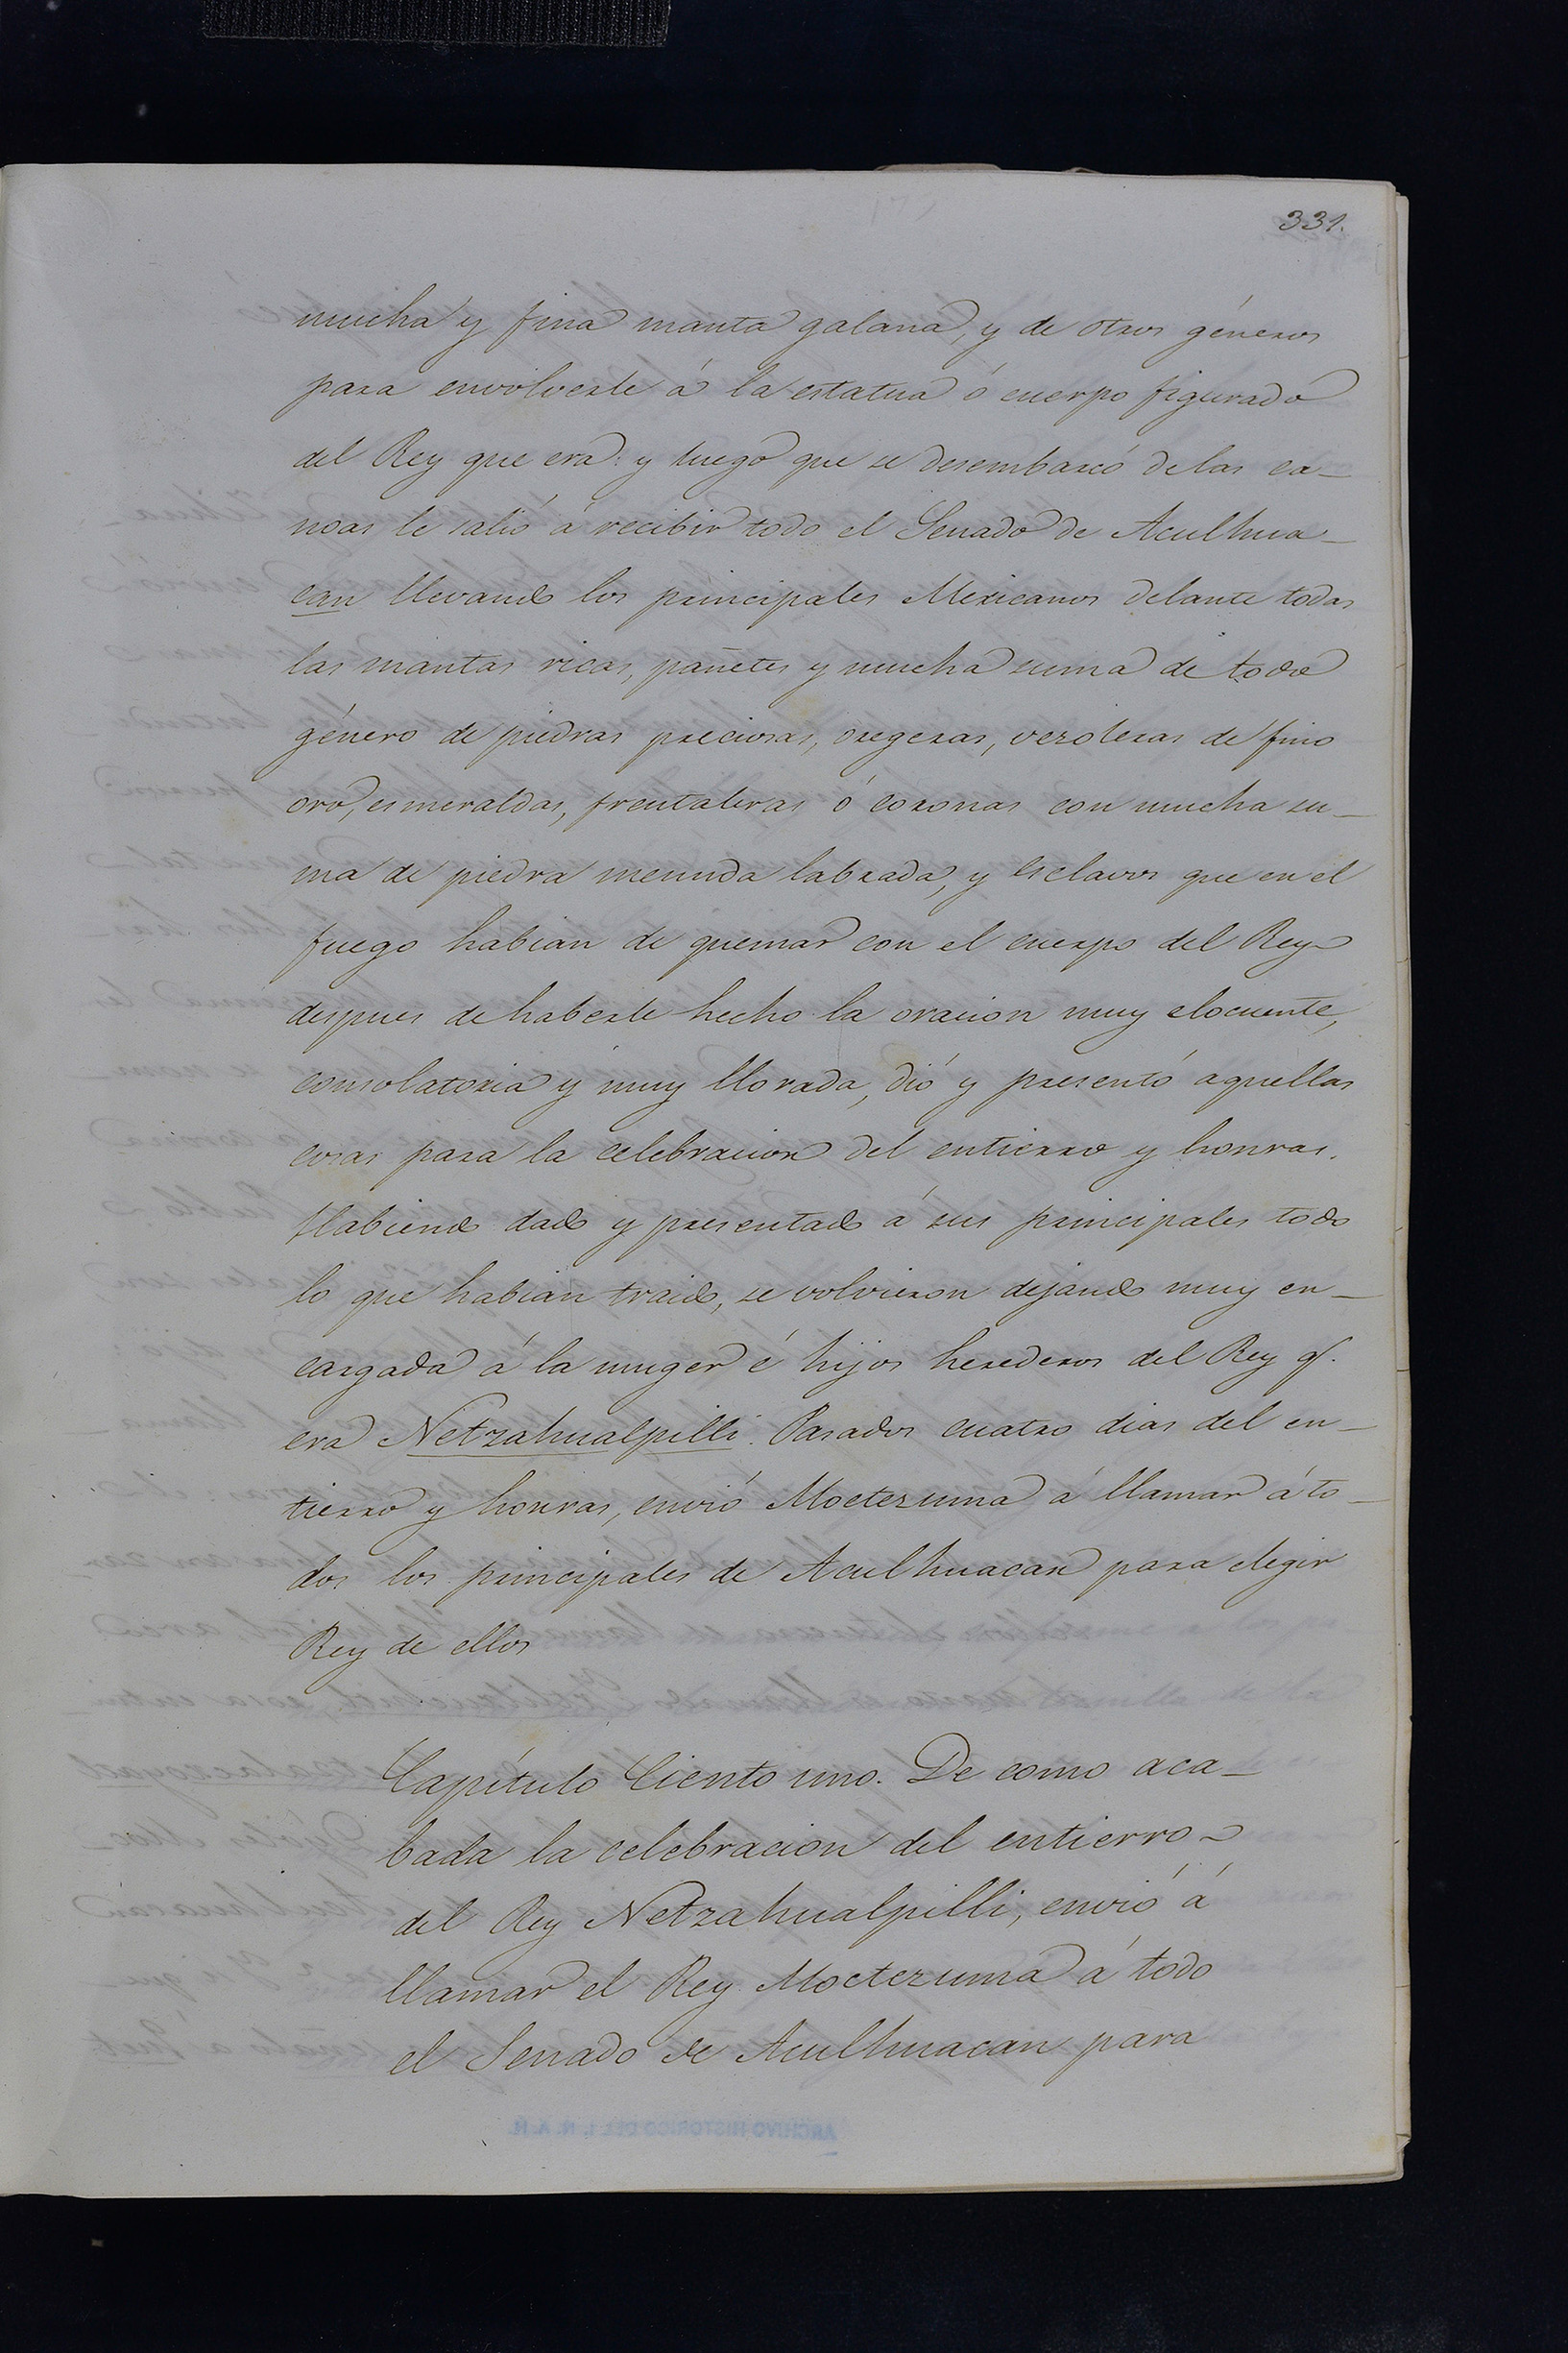 331.
mucha y fina manta galana, y de otros géneros
para envolverle á la estatua ó cuerpo figurado
del Rey que era: y luego que se desembarcó de las ca-
noas le salió á recibir todo el Senado de Aculhua-
can llevando los principales Mexicanos delante todas
las mantas ricas, pañetes y mucha suma de todo
género de piedras preciosas, oregeras, vezoleras de fino
oro, esmeraldas, frentaleras ó coronas con mucha su-
ma de piedra menuda labrada, y esclavos que en el
fuego habian de quemar con el cuerpo del Rey
despues de haberle hecho la oracion muy elocuente,
consolatoria y muy llorada, dió y presentó aquellas
cosas para la celebracion del entierro y honras.
Habiendo dado y presentado á sus principales todo
lo que habian traido, se volvieron dejando muy en-
cargada á la muger é hijos herederos del Rey q.
era Netzahualpilli. Pasados cuatro dias del en-
tierro y honras, envió Moctezuma á llamar á to-
dos los principales de Aculhuacan para elegir
Rey de ellos
Capítulo Ciento uno. De como aca-
bada la celebracion del entierro
del Rey Netzahualpilli, envió á
llamar el Rey Moctezuma á todo
el Senado de Aculhuacan para
ARCHIVO HISTORICO DEL I. N. A. H.